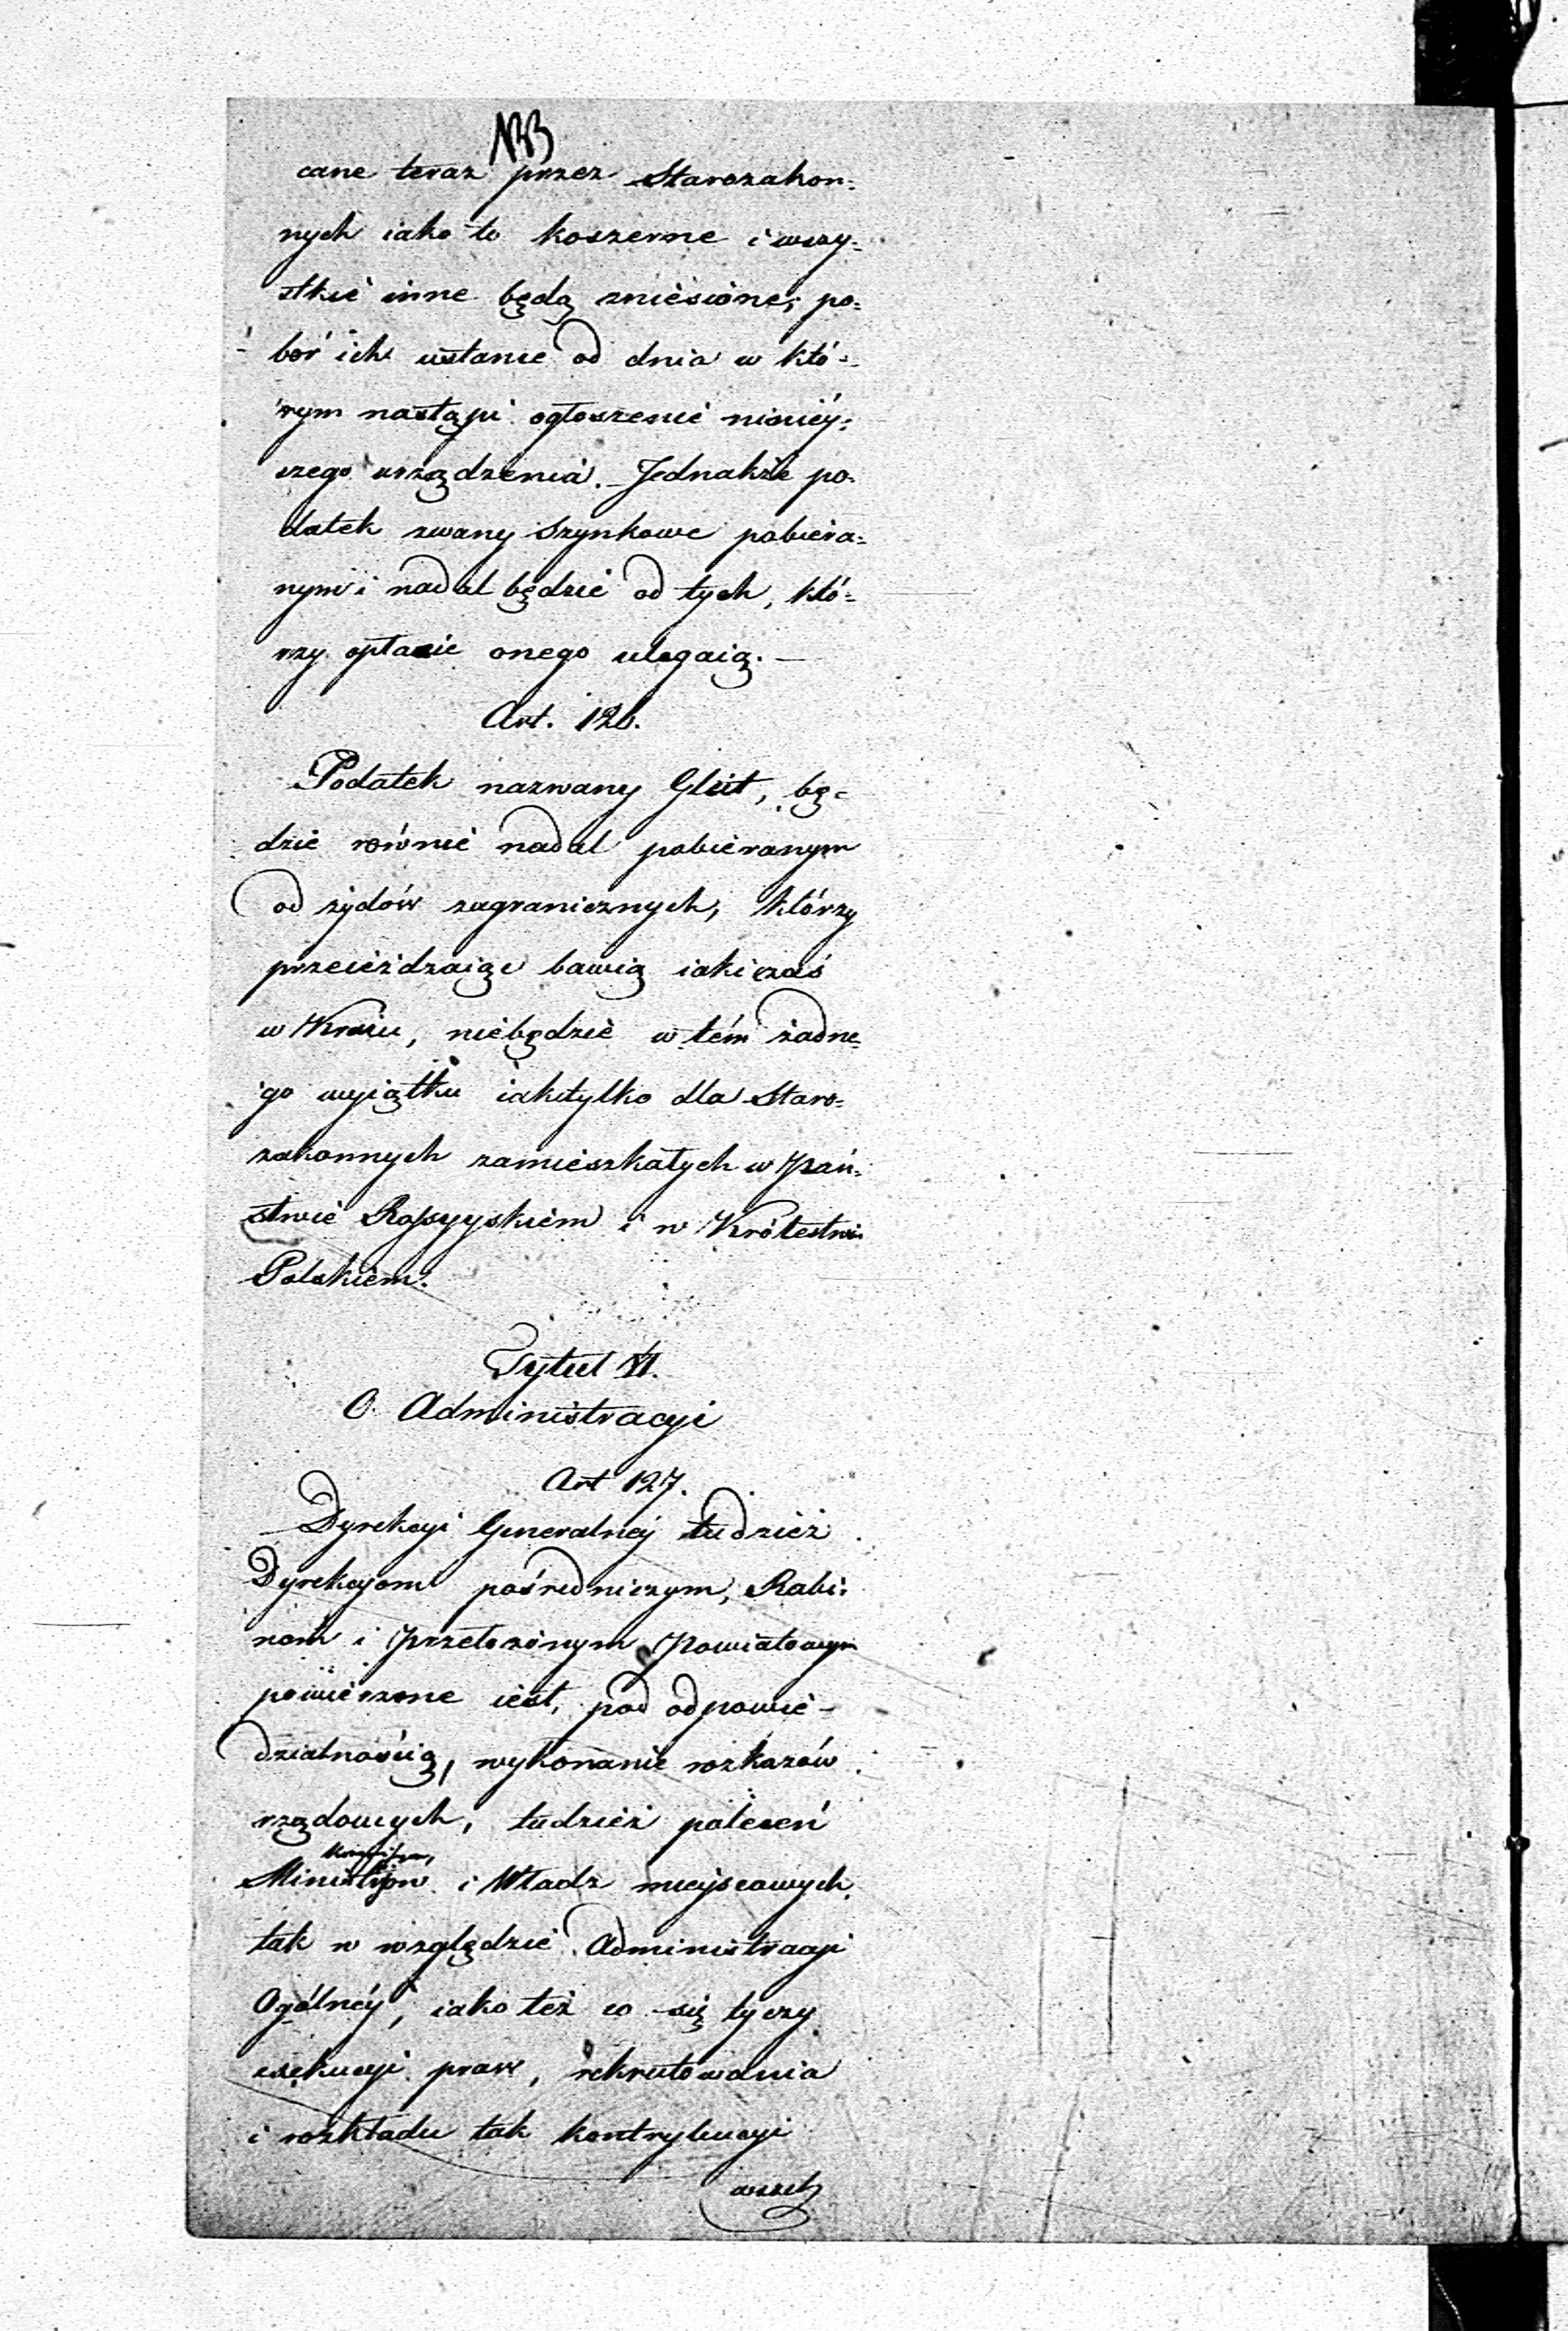 133
cane teraz przez Starozakon=
nych iako to koszerne i wszy=
stkie inne będą zniesione; po=
bór ich ustanie od dnia w któ=
rym nastąpi ogłoszenie niniéy=
szego urządzenia. – Jednakże po=
datek zwany Szynkowe pobiera=
nym i nadal będzie od tych, któ=
rzy opłacie onego ulegaią. –
Art. 126.
Podatek nazwany Gleit, bę=
dzie równie nadal pobieranym
od żydów zagranicznych, którzy
przeieżdzaiąc bawią iaki czas
w Kraiu, niebędzie w tém żadne=
go wyiątku iak tylko dla Staro=
zakonnych zamieszkałych w Pań=
stwie Rossyyskiem i w Królestwie
Polskiem.
Tytuł VI.
O Administracyi
Art 127.
Dyrekcyi Generalnéj tudzież
Dyrekcyom pośredniczym, Rabi=
nom i Przełożonym Powiatowym
powierzone iest, pod odpowie-
dzialnością, wykonanie rozkazów
rządowych, tudzież poleceń
i Władz mieyscowych,
tak w względzie Administracyi
Ogólnéy, iako też co się tyczy
exekucyi praw, rekrutowania
i rozkładu tak kontrybucyi